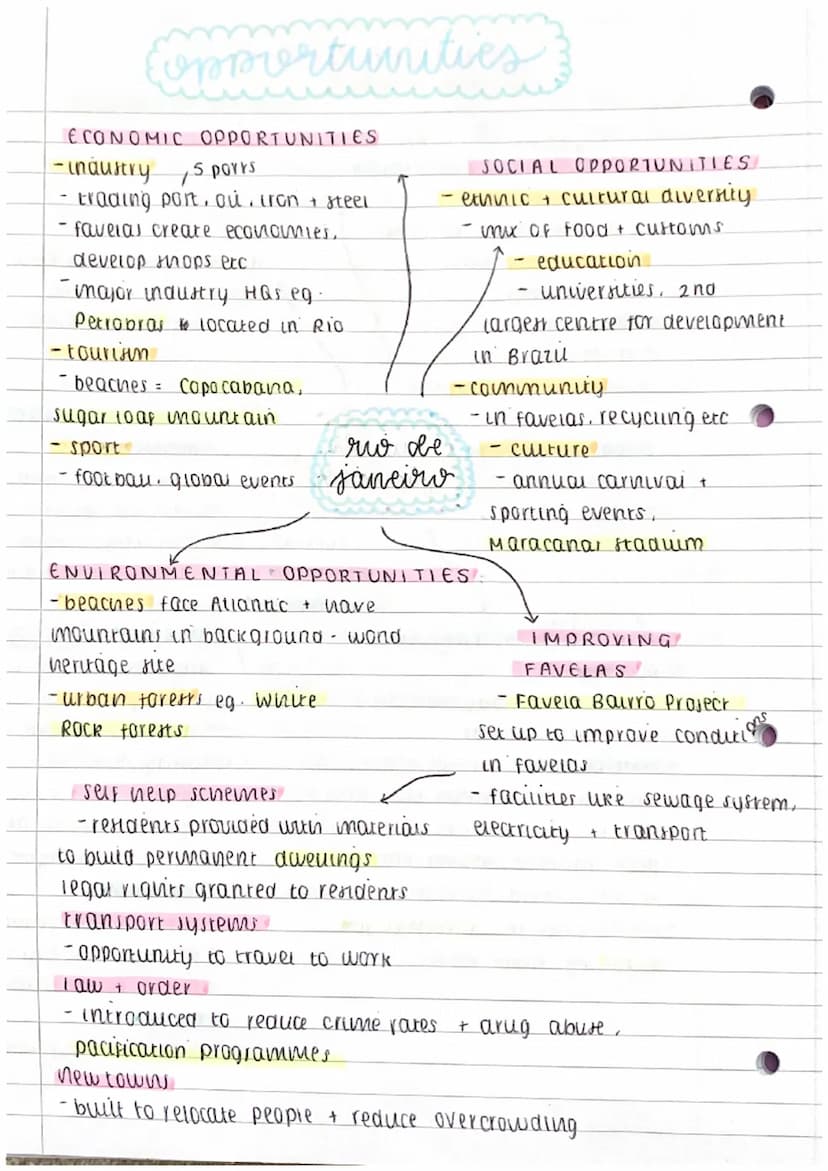 opportunities
ECONOMIC OPPORTUNITIES
- industry , 5 ports
- trading port, oil, iron + steel
- favelas create economies,
develop shops etc
- major industry HQs eg.
Petrobras located in Rio
- tourism
- beaches = Copocabana,
sugar loaf mountain
- sport
- football, global events
SOCIAL OPPORTUNITIES
- ethnic + cultural diversity
- mix of food + customs
- education
- universities, 2nd
largest centre for development
in Brazil
- community
- in favelas, recycling etc
- culture
- annual carnival +
sporting events,
Maracanar stadium
rio de
janeiro
ENVIRONMENTAL OPPORTUNITIES
- beaches face Atlantic + have
mountains in background - world
heritage site
- urban forests eg. White
Rock forests
IMPROVING
FAVELAS
- Favela Bairro Project
set up to improve conditions
in favelas
- facilities like sewage system,
electricity + transport
self help schemes
- residents provided with materials
to build permanent dwellings
legal rights granted to residents
transport systems
- opportunity to travel to work
law + order
- introduced to reduce crime rates + drug abuse,
pacification programmes
new towns
- built to relocate people + reduce overcrowding